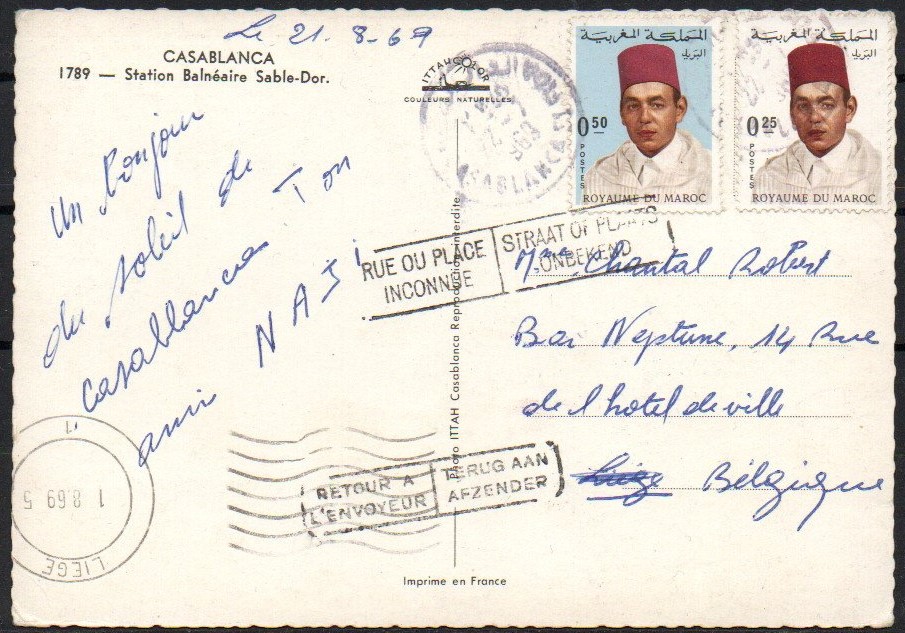 Le 21-8-69
CASABLANCA
1789 — Station Balnéaire Sable-Dor.
ITTAHCOLOR
COULEURS NATURELLES
Un bonjour
du soleil de
Casablanca Ton
ami NAJI
CASABLANCA
المملكة المغربية
البريد
0.50
POSTES
ROYAUME DU MAROC
المملكة المغربية
البريد
0.25
POSTES
ROYAUME DU MAROC
RUE OU PLACE
INCONNUE
STRAAT OF PLAATS
ONBEKEND
Photo ITTAH Casablanca Reproduction interdite
Chantal Robert
Bar Neptune, 14 Rue
de l'hotel de ville
Liège Bélgique
RETOUR A
L'ENVOYEUR
TERUG AAN
AFZENDER
1
1 8.69 5
LIEGE
Imprime en France